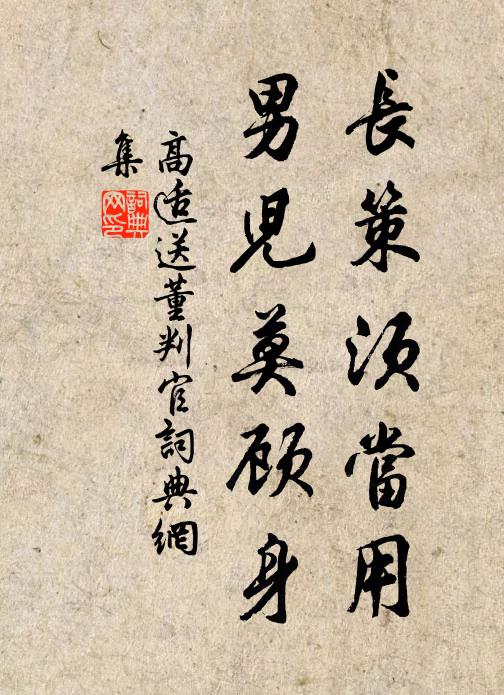 長策須當用
男兒莫顧身
高適送董判官詞典網
集
詞典
网印